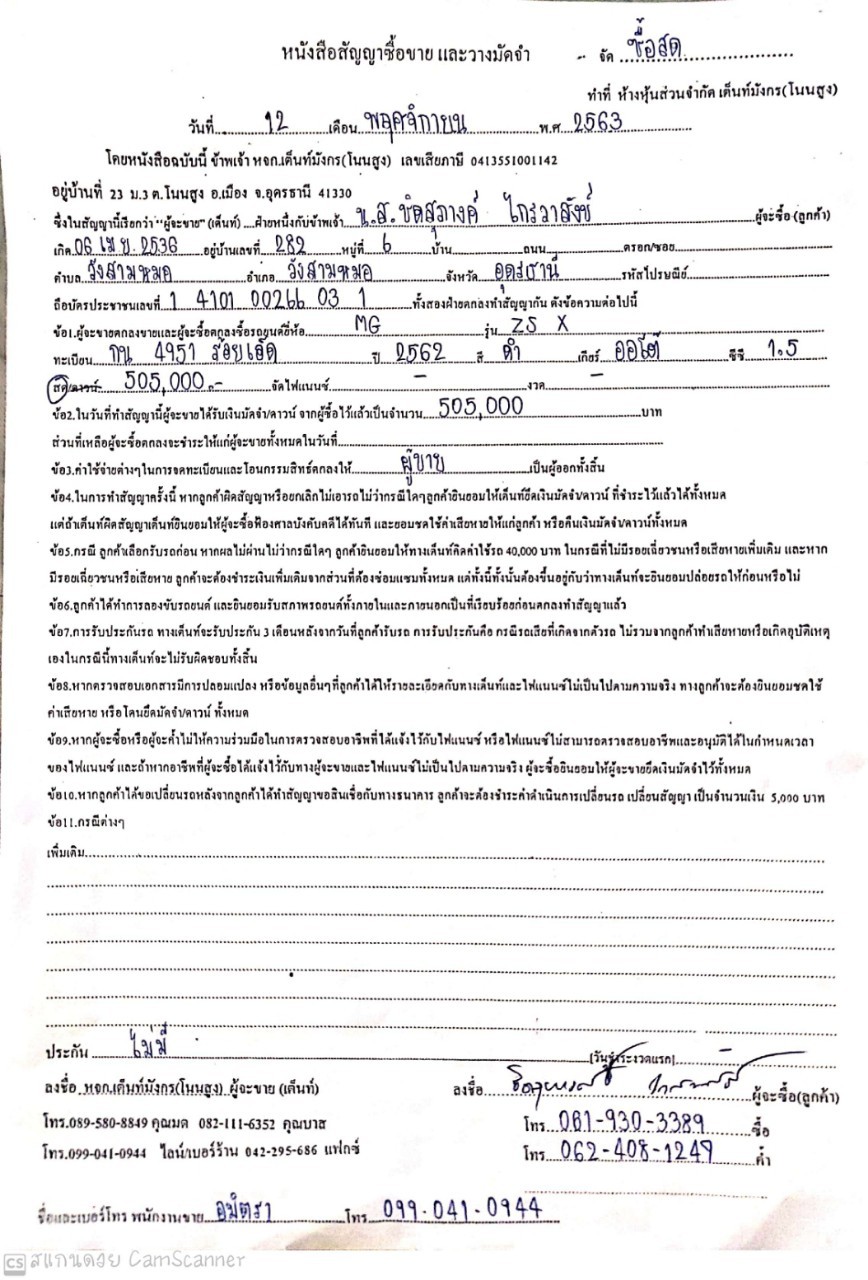 หนังสือสัญญาซื้อขาย และวางมัดจำ -- จัด ซื้อสด
ทำที่ ห้างหุ้นส่วนจำกัด เต็นท์มังกร(โนนสูง)
วันที่ 12 เดือน พฤศจิกายน พ.ศ 2563
โดยหนังสือฉบับนี้ ข้าพเจ้า หจก.เต็นท์มังกร(โนนสูง) เลขเสียภาษี 0413551001142
อยู่บ้านที่ 23 ม.3 ต.โนนสูง อ.เมือง จ.อุดรธานี 41330
ซึ่งในสัญญานี้เรียกว่า "ผู้จะขาย" (เต็นท์) ฝ่ายหนึ่งกับข้าพเจ้า น.ส. ชิดสุภางค์ ไกรวาสังข์ ผู้จะซื้อ (ลูกค้า)
เกิด 06 เม.ย. 2536 อยู่บ้านเลขที่ 282 หมู่ที่ 6 บ้าน ถนน ตรอก/ซอย
ตำบล วังสามหมอ อำเภอ วังสามหมอ จังหวัด อุดรธานี รหัสไปรษณีย์
ถือบัตรประชาชนเลขที่ 1 4101 00266 03 1 ทั้งสองฝ่ายตกลงทำสัญญากัน ดังข้อความต่อไปนี้
ข้อ1.ผู้จะขายตกลงขายและผู้จะซื้อตกลงซื้อรถยนต์ยี่ห้อ MG รุ่น ZS X
ทะเบียน กน 4951 ร้อยเอ็ด ปี 2562 สี ดำ เกียร์ ออโต้ ซีซี 1.5
สด/ดาวน์ 505,000.- จัดไฟแนนซ์ – งวด –
ข้อ2.ในวันที่ทำสัญญานี้ผู้จะขายได้รับเงินมัดจำ/ดาวน์ จากผู้ซื้อไว้แล้วเป็นจำนวน 505,000 บาท
ส่วนที่เหลือผู้จะซื้อตกลงจะชำระให้แก่ผู้จะขายทั้งหมดในวันที่
ข้อ3.ค่าใช้จ่ายต่างๆในการจดทะเบียนและโอนกรรมสิทธิ์ตกลงให้ ผู้ขาย เป็นผู้ออกทั้งสิ้น
ข้อ4.ในการทำสัญญาครั้งนี้ หากลูกค้าผิดสัญญาหรือยกเลิกไม่เอารถไม่ว่ากรณีใดๆลูกค้ายินยอมให้เต็นท์ยึดเงินมัดจำ/ดาวน์ ที่ชำระไว้แล้วได้ทั้งหมด
แต่ถ้าเต็นท์ผิดสัญญาเต็นท์ยินยอมให้ผู้จะซื้อฟ้องศาลบังคับคดีได้ทันที และยอมชดใช้ค่าเสียหายให้แก่ลูกค้า หรือคืนเงินมัดจำ/ดาวน์ทั้งหมด
ข้อ5.กรณี ลูกค้าเลือกรับรถก่อน หากผลไม่ผ่านไม่ว่ากรณีใดๆ ลูกค้ายินยอมให้ทางเต็นท์คิดค่าใช้รถ 40,000 บาท ในกรณีที่ไม่มีรอยเฉี่ยวชนหรือเสียหายเพิ่มเติม และหาก
มีรอยเฉี่ยวชนหรือเสียหาย ลูกค้าจะต้องชำระเงินเพิ่มเติมจากส่วนที่ต้องซ่อมแซมทั้งหมด แต่ทั้งนี้ทั้งนั้นต้องขึ้นอยู่กับว่าทางเต็นท์จะยินยอมปล่อยรถให้ก่อนหรือไม่
ข้อ6.ลูกค้าได้ทำการลองขับรถยนต์ และยินยอมรับสภาพรถยนต์ทั้งภายในและภายนอกเป็นที่เรียบร้อยก่อนตกลงทำสัญญาแล้ว
ข้อ7.การรับประกันรถ ทางเต็นท์จะรับประกัน 3 เดือนหลังจากวันที่ลูกค้ารับรถ การรับประกันคือ กรณีรถเสียที่เกิดจากตัวรถ ไม่รวมจากลูกค้าทำเสียหายหรือเกิดอุบัติเหตุ
เองในกรณีนี้ทางเต็นท์จะไม่รับผิดชอบทั้งสิ้น
ข้อ8.หากตรวจสอบเอกสารมีการปลอมแปลง หรือข้อมูลอื่นๆที่ลูกค้าได้ให้รายละเอียดกับทางเต็นท์และไฟแนนซ์ไม่เป็นไปตามความจริง ทางลูกค้าจะต้องยินยอมชดใช้
ค่าเสียหาย หรือโดนยึดมัดจำ/ดาวน์ ทั้งหมด
ข้อ9.หากผู้จะซื้อหรือผู้จะค้ำไม่ให้ความร่วมมือในการตรวจสอบอาชีพที่ได้แจ้งไว้กับไฟแนนซ์ หรือไฟแนนซ์ไม่สามารถตรวจสอบอาชีพและอนุมัติได้ในกำหนดเวลา
ของไฟแนนซ์ และถ้าหากอาชีพที่ผู้จะซื้อได้แจ้งไว้กับทางผู้จะขายและไฟแนนซ์ไม่เป็นไปตามความจริง ผู้จะซื้อยินยอมให้ผู้จะขายยึดเงินมัดจำไว้ทั้งหมด
ข้อ10.หากลูกค้าได้ขอเปลี่ยนรถหลังจากลูกค้าได้ทำสัญญาขอสินเชื่อกับทางธนาคาร ลูกค้าจะต้องชำระค่าดำเนินการเปลี่ยนรถ เปลี่ยนสัญญา เป็นจำนวนเงิน 5,000 บาท
ข้อ11.กรณีต่างๆ
เพิ่มเติม
ประกัน ไม่มี (วันชำระงวดแรก) –
ลงชื่อ หจก.เต็นท์มังกร(โนนสูง) ผู้จะขาย (เต็นท์) ลงชื่อ ผู้จะซื้อ(ลูกค้า)
โทร.089-580-8849 คุณมด 082-111-6352 คุณบาส โทร 061-930-3389 ซื้อ
โทร.099-041-0944 ไลน์/เบอร์ร้าน 042-295-686 แฟกซ์ โทร 062-408-1249 ค้ำ
ชื่อและเบอร์โทร พนักงานขาย อมิตรา โทร 099-041-0944
CS สแกนด้วย CamScanner